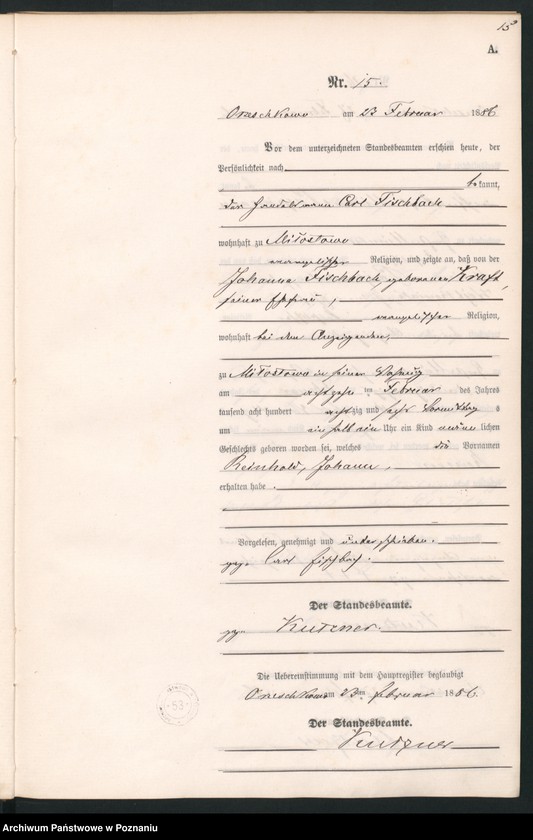 15
A.
Nr. 15.
Orzeschkowo am 23 Februar 1886
Vor dem unterzeichneten Standesbeamten erschien heute, der
Persönlichkeit nach
bekannt,
der Handelsmann Carl Fischbach
wohnhaft zu Miłostowo
evangelischer Religion, und zeigte an, daß von der
Johanna Fischbach, geborenen Kraft,
seiner Ehefrau,
evangelischer Religion,
wohnhaft bei dem Anzeigenden,
zu Miłostowo in seiner Wohnung
am achtzehn ten Februar des Jahres
tausend acht hundert achtzig und sechs Vormittags
um ein halb ein Uhr ein Kind männlichen
Geschlechts geboren worden sei, welches die Vornamen
Reinhold, Johann,
erhalten habe.
Vorgelesen, genehmigt und unterschrieben.
gez. Carl Fischbach.
Der Standesbeamte.
gez. Kutzner.
Die Uebereinstimmung mit dem Hauptregister beglaubigt
Orzeschkowo am 23ten Februar 1886.
Der Standesbeamte.
Kutzner
53
Archiwum Państwowe w Poznaniu